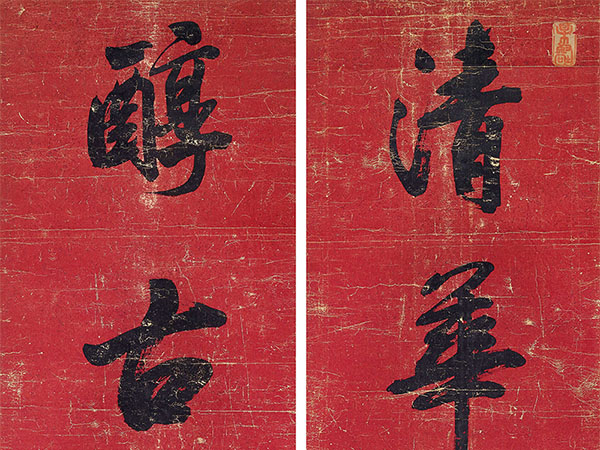 清華
醇古